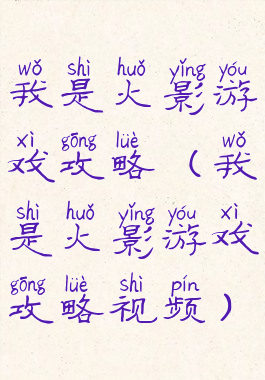 wǒ shì huǒ yǐng yóu
我是火影游
xì gōng lüè wǒ
戏攻略（我
shì huǒ yǐng yóu xì
是火影游戏
gōng lüè shì pín
攻略视频）